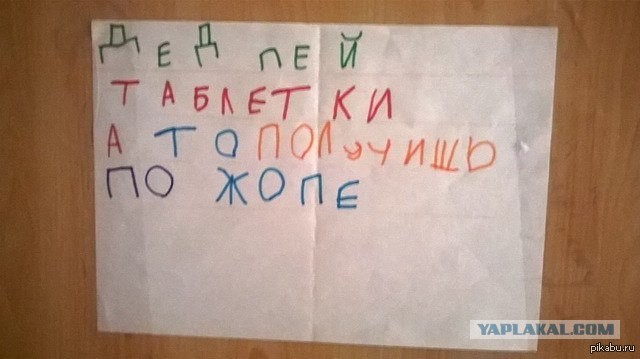 ДЕД ПЕЙ
ТАБЛЕТКИ
А ТО ПОЛУЧИШЬ
ПО ЖОПЕ
YAPLAKAL.COM
pikabu.ru